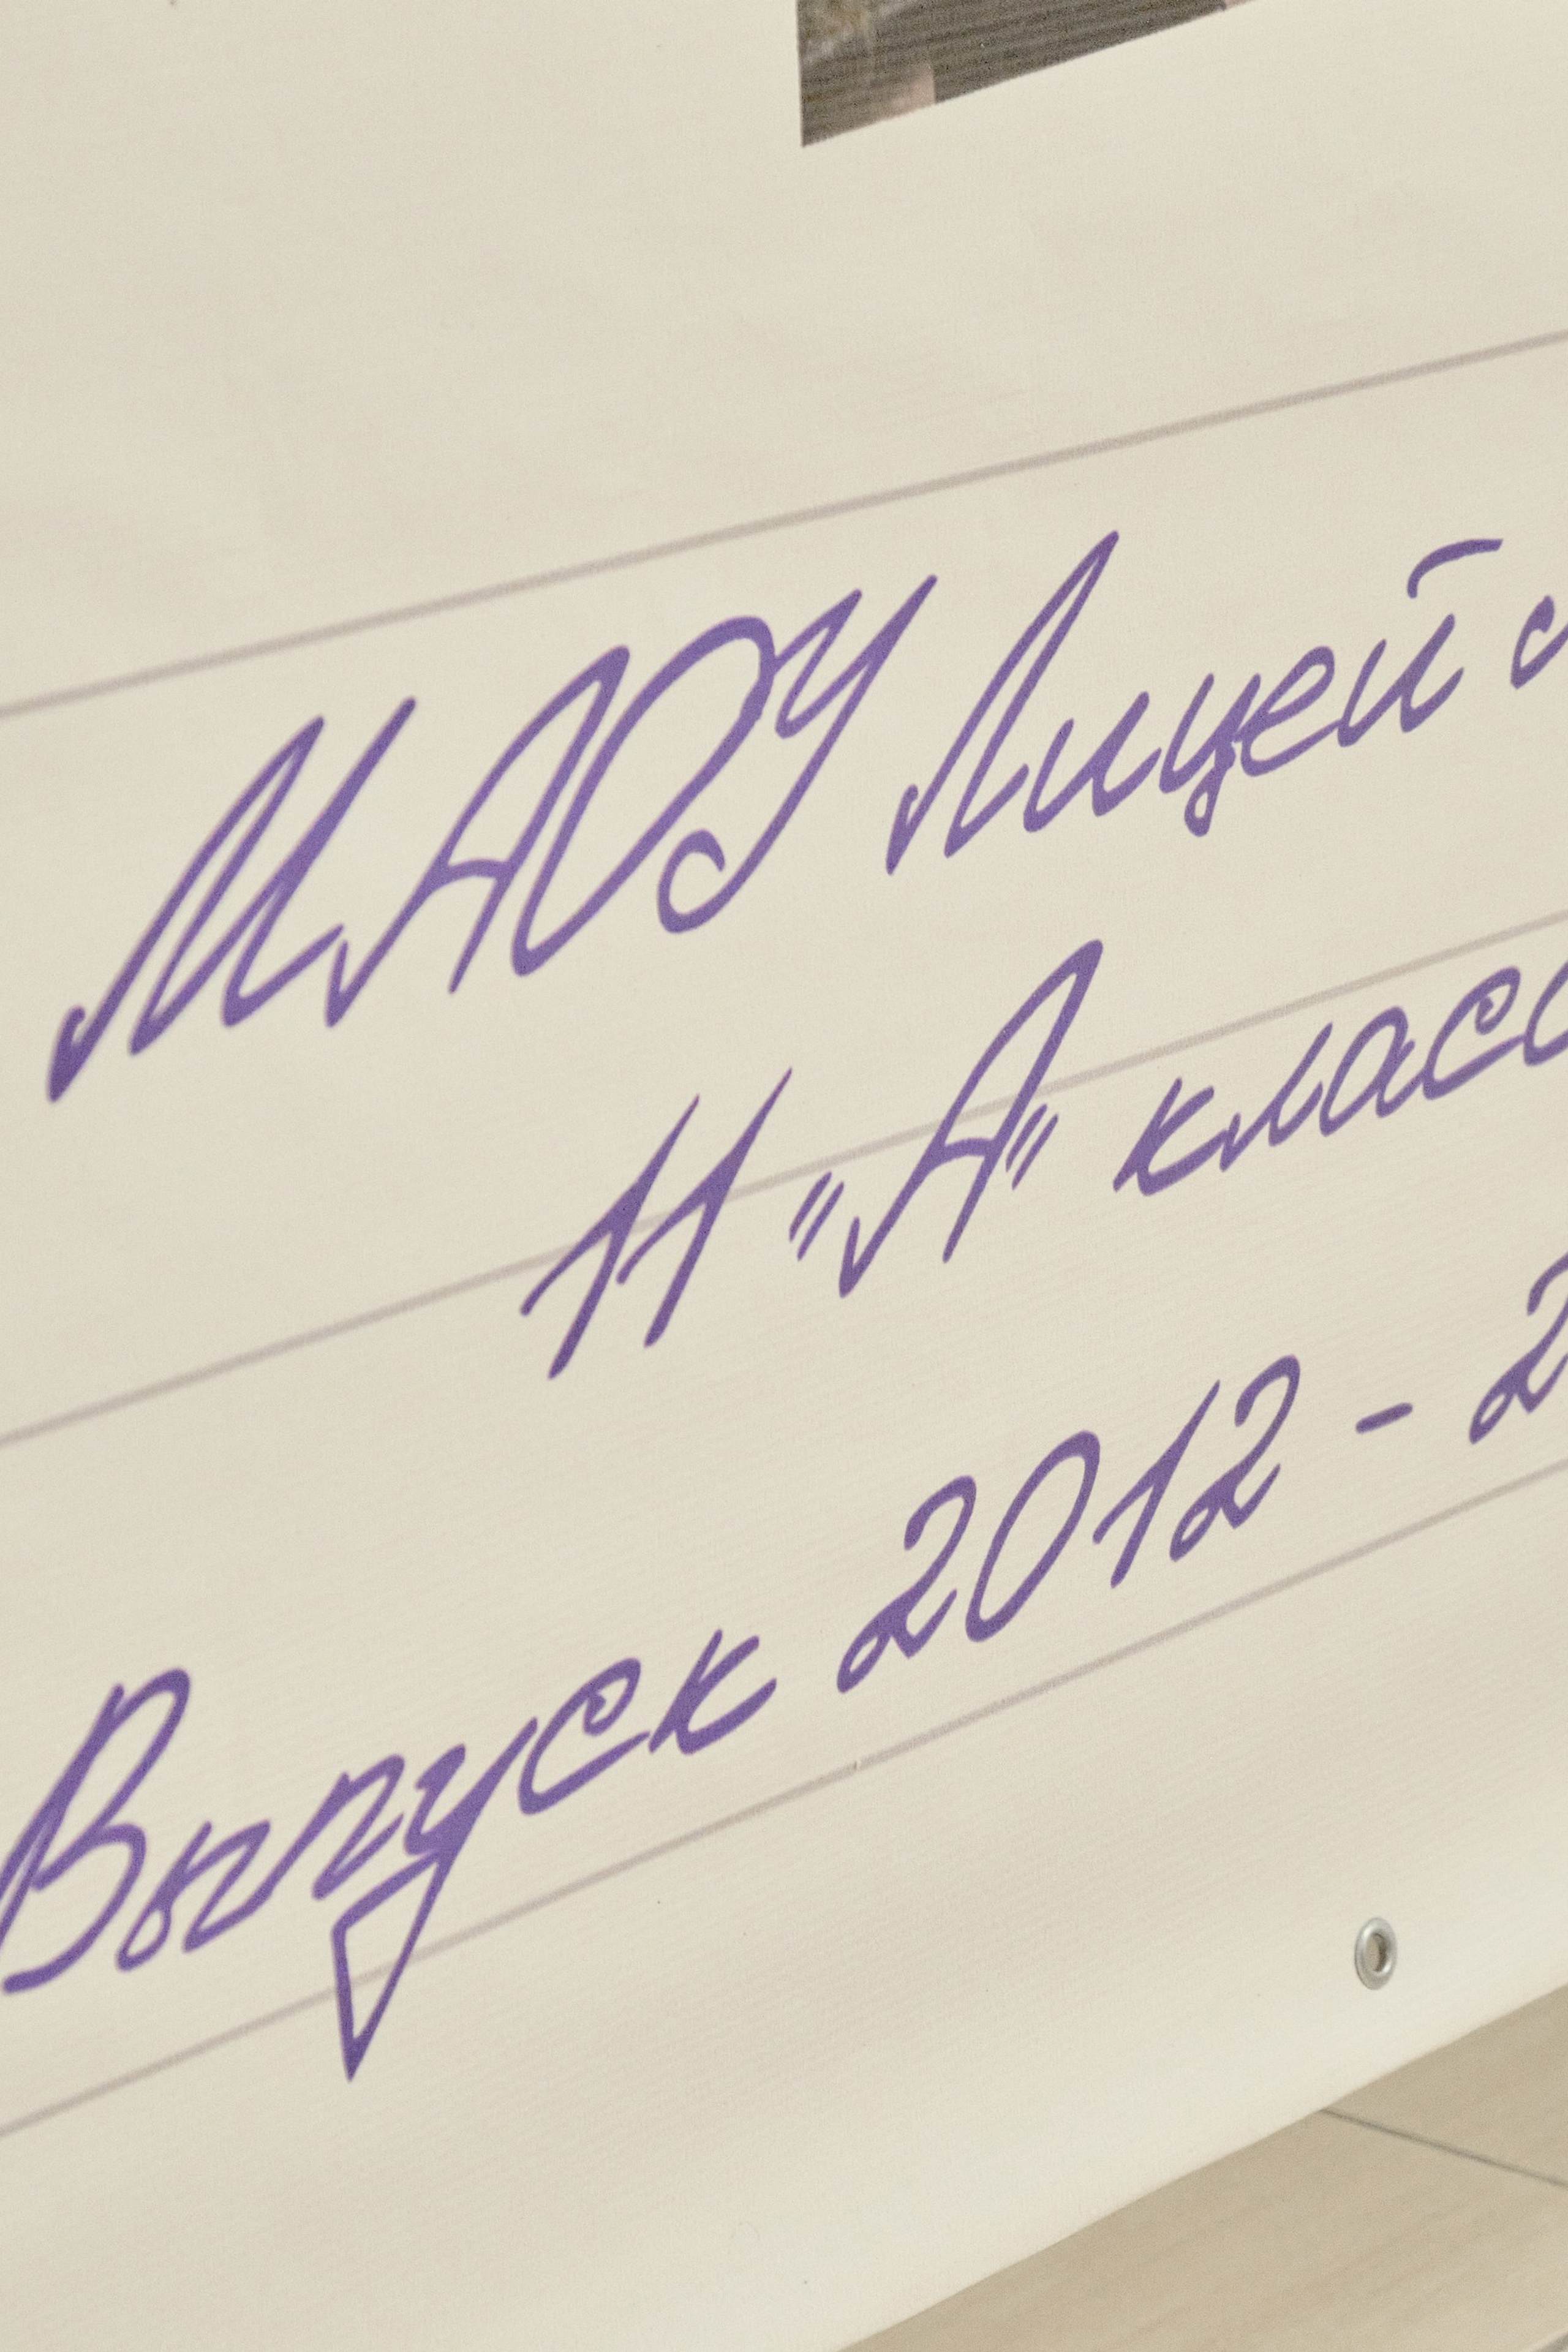 МАОУ Лицей
11 "А" класс
Выпуск 2012 - 2